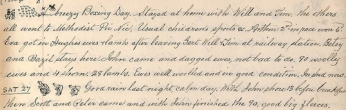 A breezy Boxing Day. Stayed at home with Will and Tom. The others
all went to Methodist Pic Nic. Usual childrens sports &
Eva got in Hughies ewes & lambs after leaving Will Tom at railway station. Betsy
and Bazil stay here. John came and dagged ewes, not bad to do. 90 woolly
ewes and 4 shorn: 28 lambs. Ewes well wooled and in good condition.
SAT 27 Good rain last night, calm day. With John shore 13 before breakfast
then Scott and Peter came and with Tom finished the 90, good big fleeces.